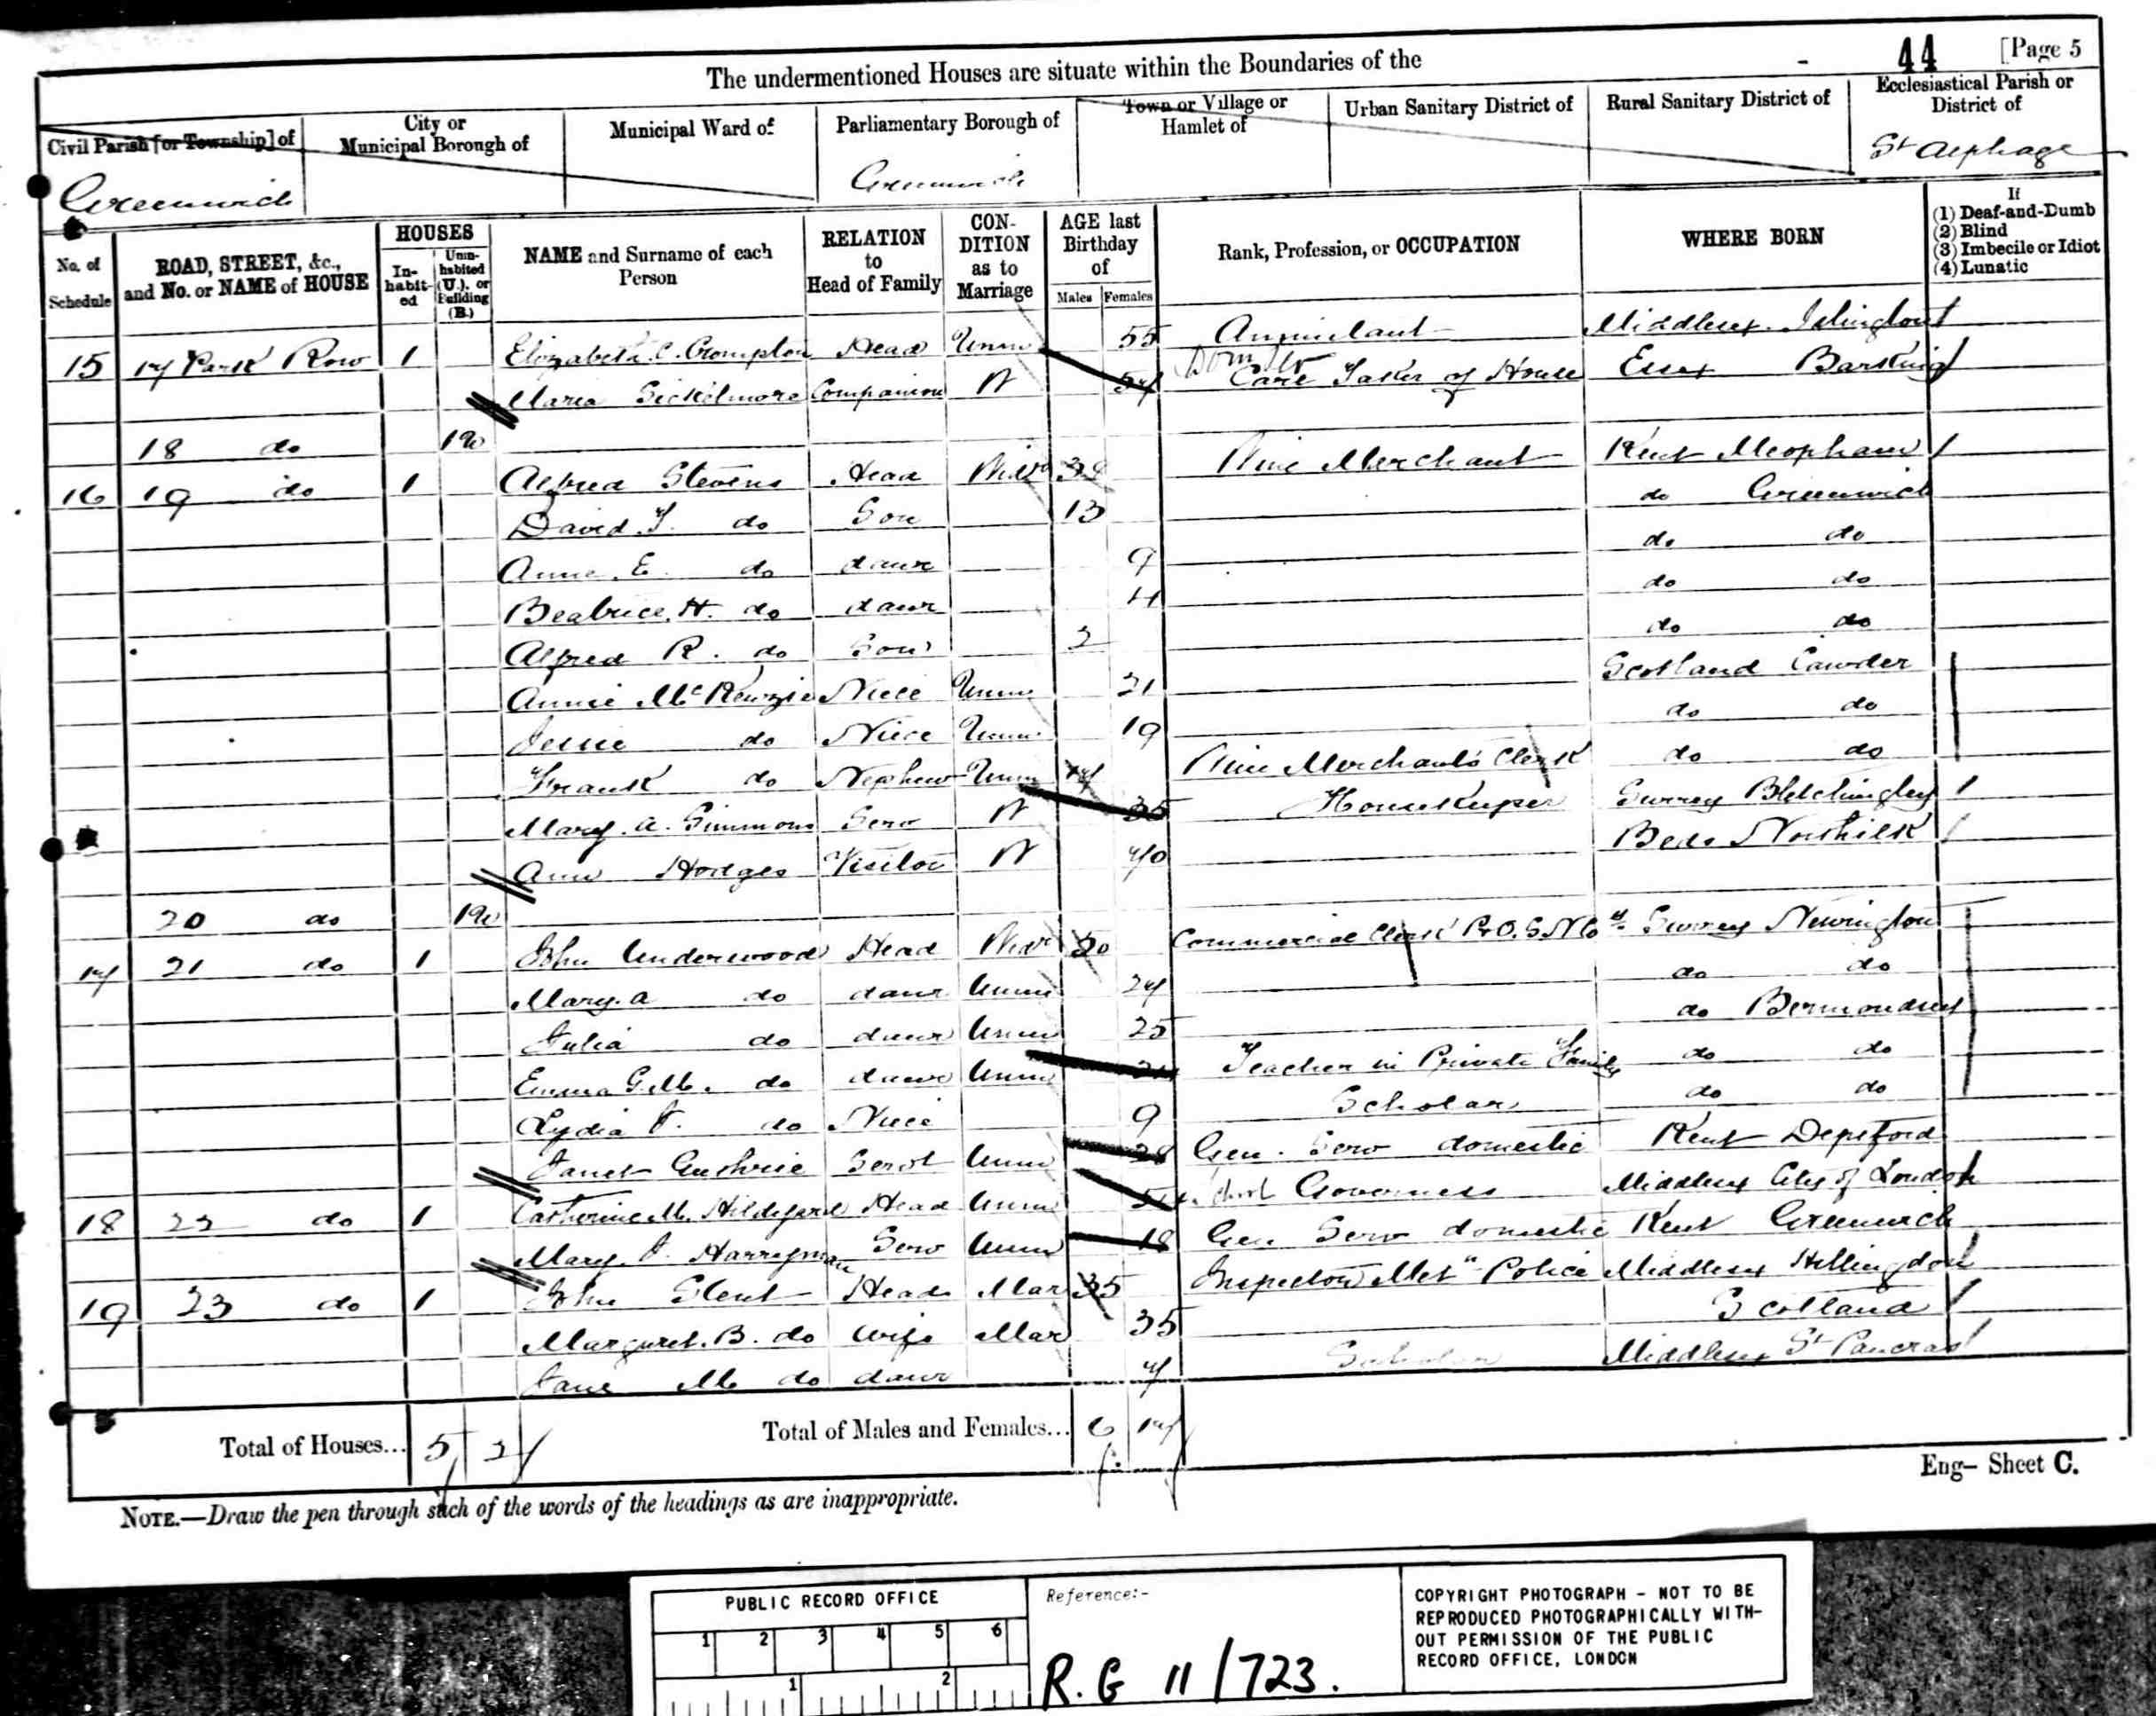 44 [Page 5
The undermentioned Houses are situate within the Boundaries of the
Civil Parish [or Township] of
City or Municipal Borough of
Municipal Ward of
Parliamentary Borough of
Town or Village or Hamlet of
Urban Sanitary District of
Rural Sanitary District of
Ecclesiastical Parish or District of
Greenwich Greenwich St Alphage
No. of Schedule
ROAD, STREET, &c., and No. or NAME of HOUSE
HOUSES
In-habit-ed
Unin-habited (U.), or Building (B.)
NAME and Surname of each Person
RELATION to Head of Family
CON-DITION as to Marriage
AGE last Birthday of
Males Females
Rank, Profession, or OCCUPATION
WHERE BORN
If
(1) Deaf-and-Dumb
(2) Blind
(3) Imbecile or Idiot
(4) Lunatic
15 17 Park Row 1 Elizabeth. C. Crompton Head Unm 55 Annuitant Middlesex. Islington
Maria Companion W Care Taker of House Essex Barking
18 do 1u
16 19 do 1 Alfred Stevens Head Widr Wine Merchant Kent Meopham
David. T. do Son 13 do Greenwich
Anne. E. do daur 9 do do
Beatrice. H. do daur 4 do do
Alfred R. do Son 2 do do
Annie McKenzie Niece Unm 21 Scotland Cawder
Jessie do Niece Unm 19 do do
Frank do Nephew Unm 17 Wine Merchants Clerk do do
Mary. A. Simmons Serv W 35 Housekeeper Surrey Bletchingley
Ann Hodges Visitor W 70 Beds
20 do 1u
17 21 do 1 John Underwood Head Widr 50 Commercial Clerk P.O.S.N.Coy Surrey Newington
Mary. A do daur Unm 27 do do
Julia do daur Unm 25 do Bermondsey
Emma G.M. do daur Unm Teacher in Private Family do do
Lydia do Niece 9 Scholar do do
Janet Guthrie Servt Unm 28 Gen. Serv domestic Kent Deptford
18 22 do 1 Catherine M. Head Unm Governess Middlesex City of London
Mary. Serv Unm 18 Gen Serv domestic Kent Greenwich
19 23 do 1 John Head Mar 35 Inspector Metn Police Middlesex Hillingdon
Margaret. B. do Wife Mar 35 Scotland
Jane M do daur 7 Scholar Middlesex St Pancras
Total of Houses... 5 2 Total of Males and Females... 6 17
Eng- Sheet C.
NOTE.—Draw the pen through such of the words of the headings as are inappropriate.
PUBLIC RECORD OFFICE
1 2 3 4 5 6
1 2
Reference:-
R.G 11/723.
COPYRIGHT PHOTOGRAPH - NOT TO BE
REPRODUCED PHOTOGRAPHICALLY WITH-
OUT PERMISSION OF THE PUBLIC
RECORD OFFICE, LONDON